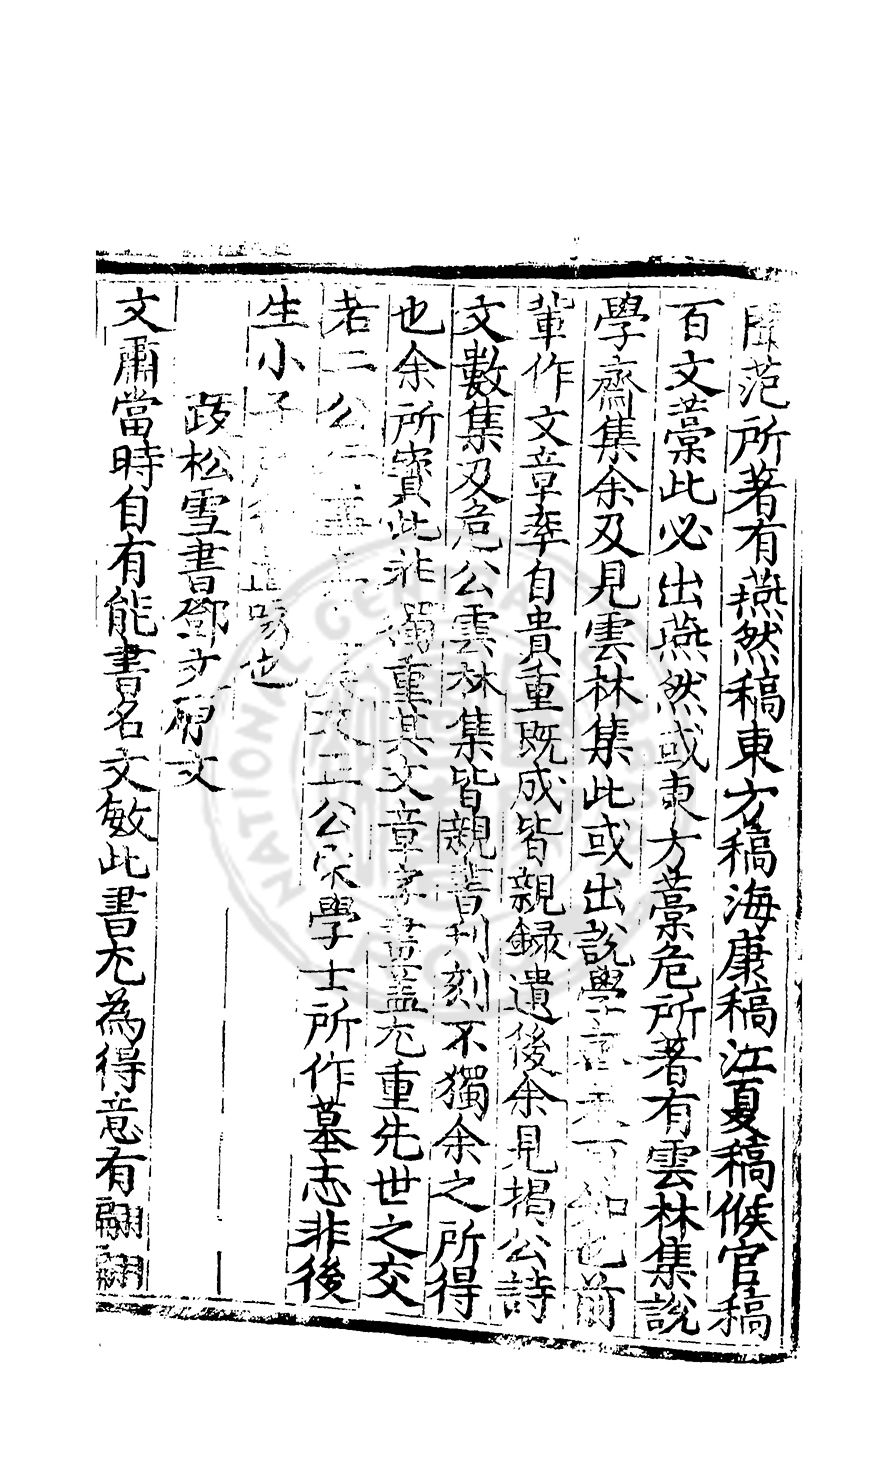 范所著有燕然稿東方稿海康稿江夏稿候官稿
百文藁此必出燕然或東方藁危所著有雲林集說
學齋集余及見雲林集此或出說學可知也前
輩作文章率自貴重既成皆親録遺後余見揭公詩
文數集及危公雲林集皆親書刋刻不獨余之所得
也余所寳此非獨重其文章字畫蓋尤重先世之交
若二公文正公宋學士所作墓志非後
生小子也
跋松雪書鄧文碑文
文肅當時自有能書名文敏此書尤為得意有翩翩
NATIONAL CENTRAL LIBRARY